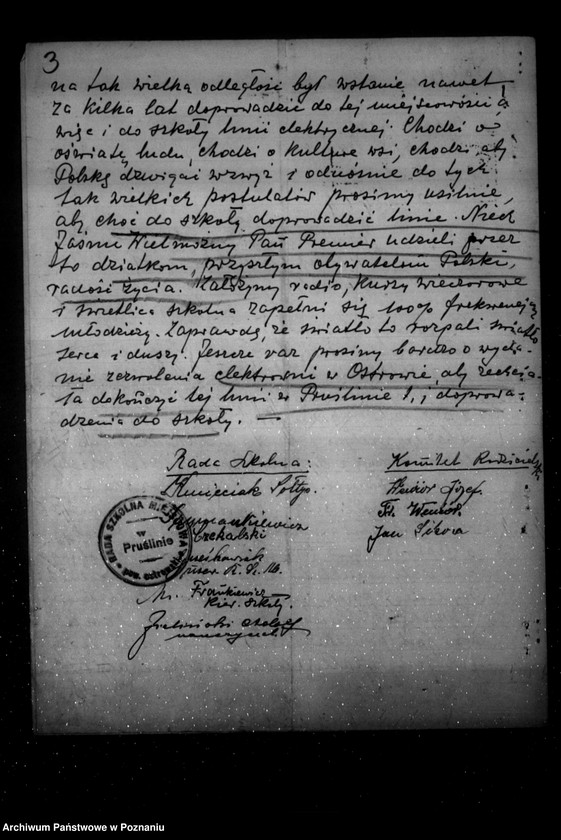 3
na tak wielką odległość był wstanie nawet
za kilka lat doprowadzić do tej miejscowości a
więc i do szkoły linii elektrycznej. Chodzi o
oświatę ludu, chodzi o kulturę wsi, chodzi aby
Polskę dzwigać wzwyż i odnośnie do tych
tak wielkich postulatów prosimy usilnie,
aby choć do szkoły doprowadzić linie. Niech
Jaśnie Wielmożny Pan Premier udzieli przez
to dziatkom, przyszłym obywatelom Polski,
radość życia. Założymy radio, kursy wieczorowe
i świetlica szkolna zapełni się 100% frekwencją
młodzieży. Zaprawdę, że światło to rozpali światło
serca i duszy. Jeszcze raz prosimy bardzo o wyda-
nie zezwolenia elektrowni w Ostrowie, aby zechcia-
ła dokończyć tej linii w Pruślinie I, i doprowa-
dzenia do szkoły. —
Rada Szkolna:
Komitet Rodzicielski
Kmieciak Sołtys.
Wenior Józef.
Fr. Wenior.
Czekalski
Jan Sikora
M. Frankiewicz
Kier. Szkoły.
Zieliński
RADA SZKOLNA MIEJSCOWA
w
Pruślinie
pow. ostrowski
Archiwum Państwowe w Poznaniu